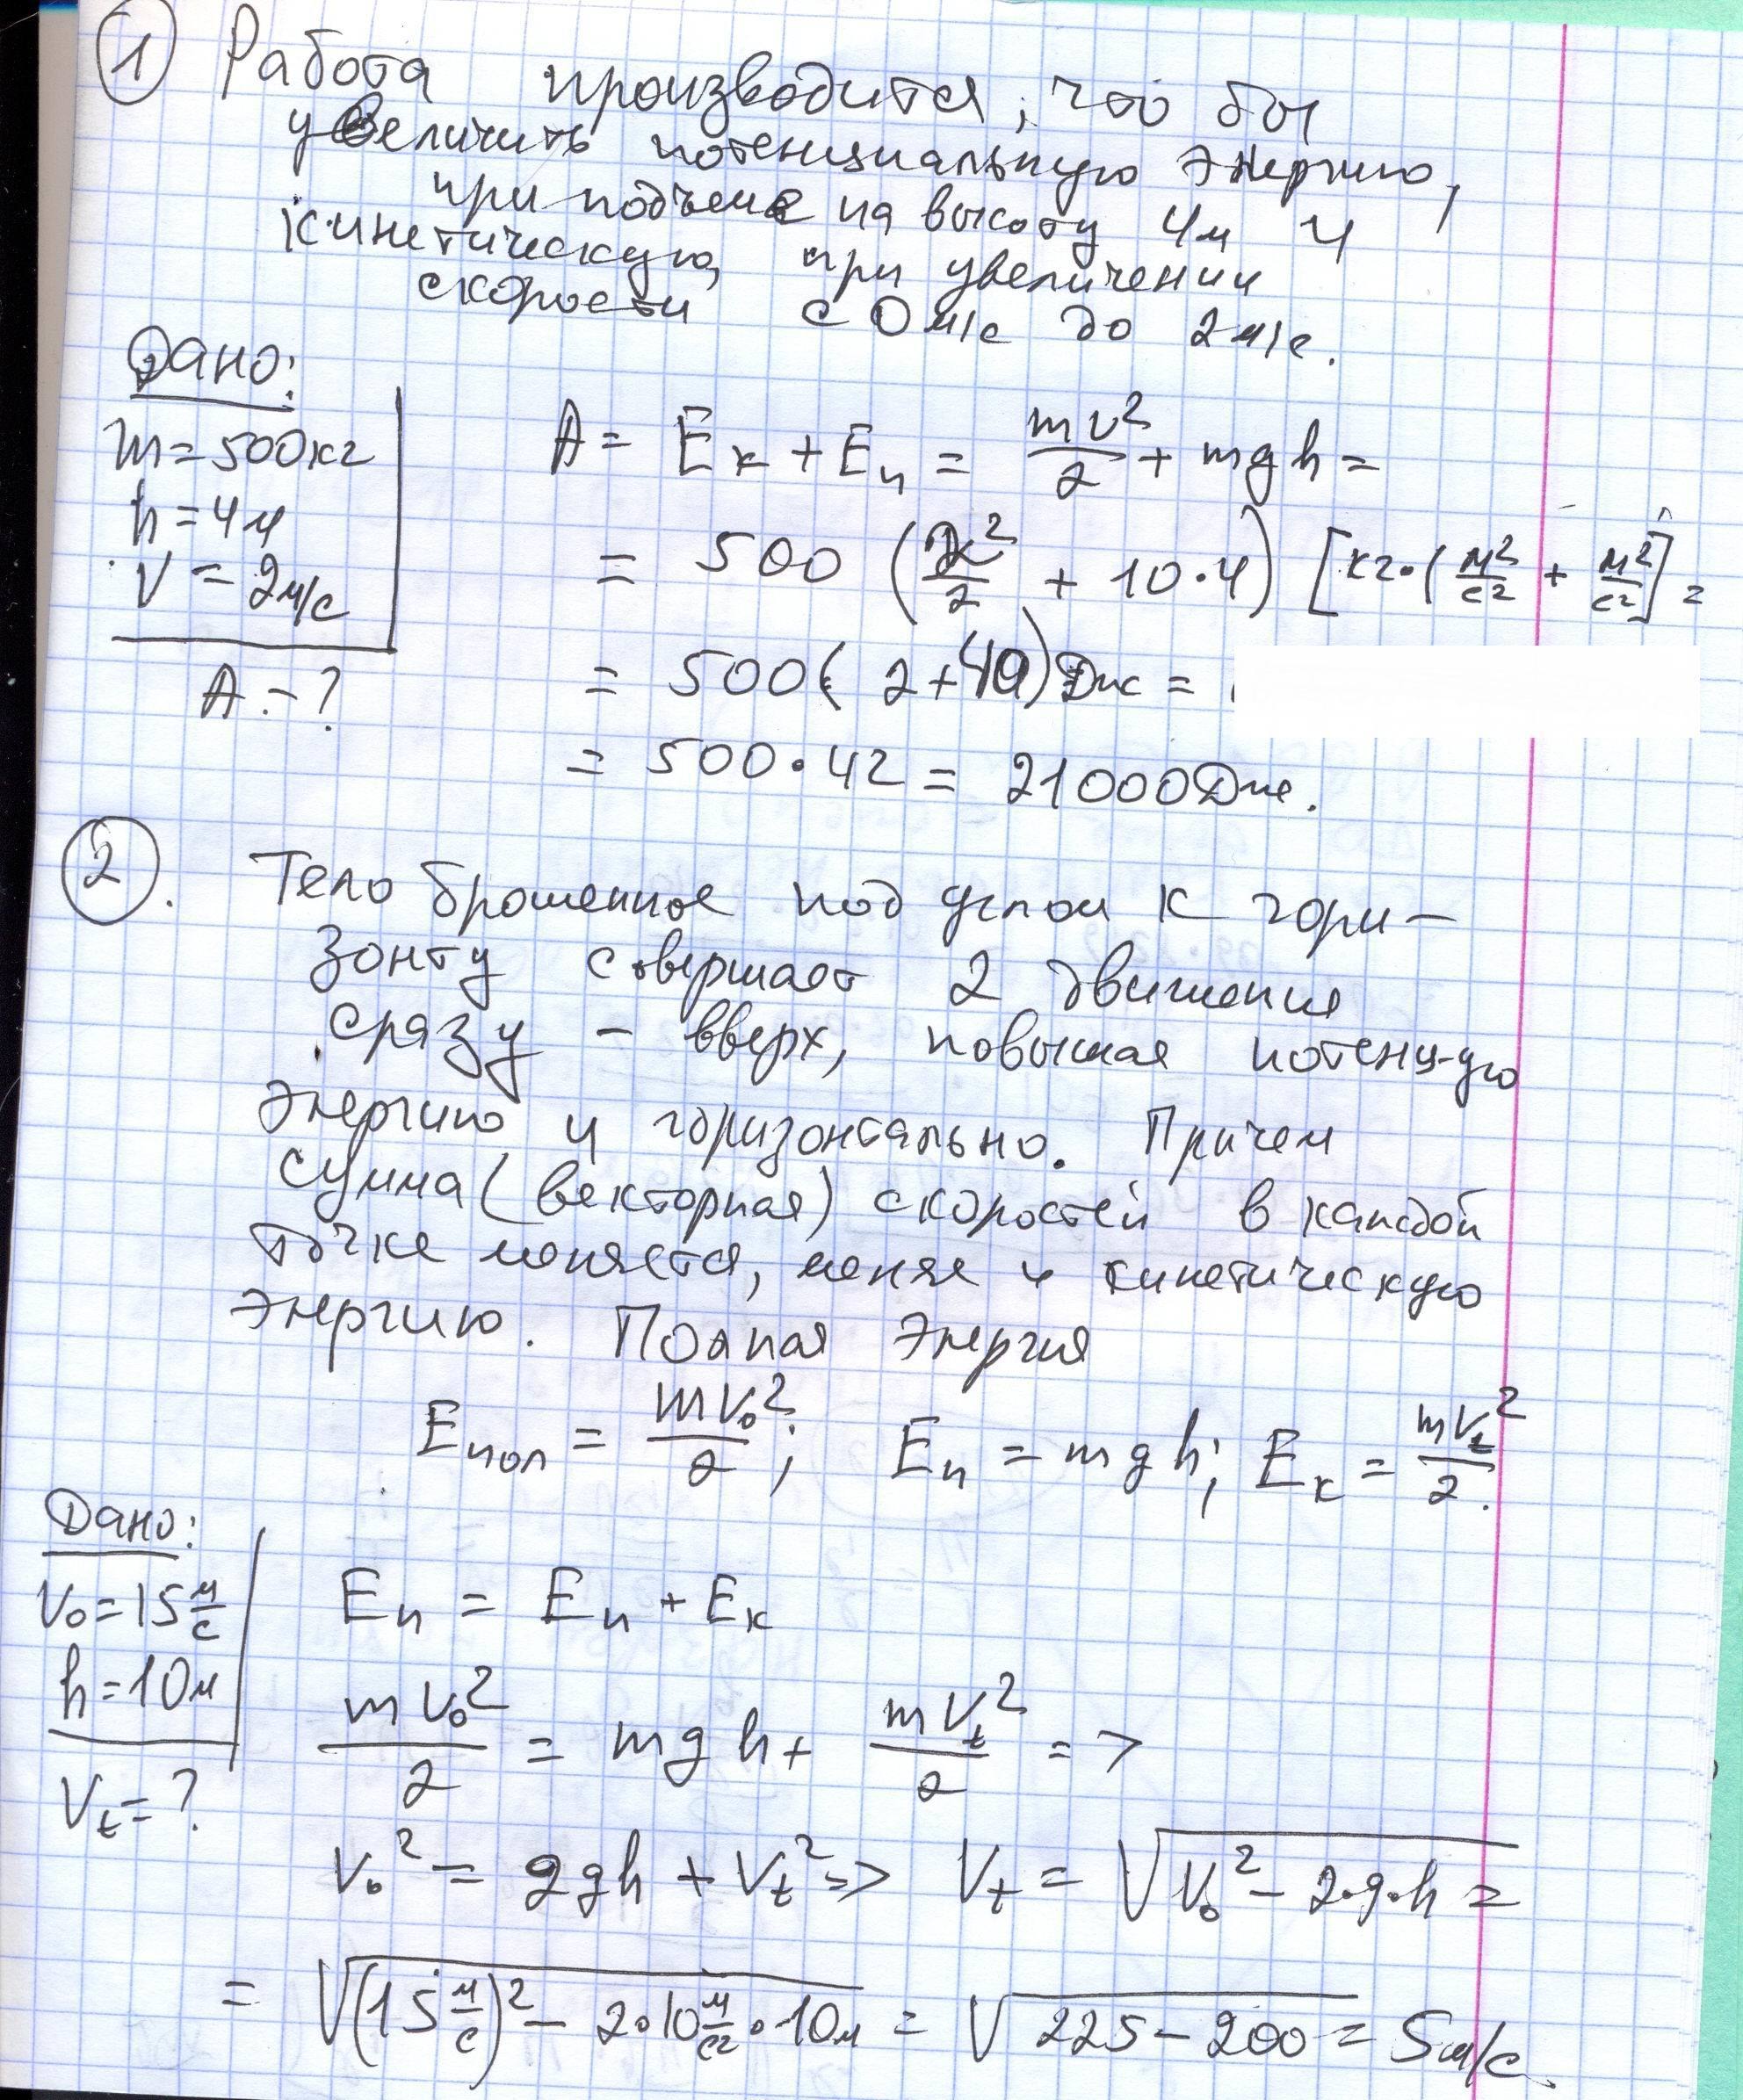 1 Работа производится, что бы
увеличить потенциальную энергию,
при подъеме на высоту 4м и
кинетическую, при увеличении
скорости с 0 м/с до 2 м/с.
Дано:
m = 500 кг
h = 4 м
V = 2 м/с
A - ?
A = Eк + Eп = mv²/2 + mgh =
= 500 (2²/2 + 10·4) [кг·(м²/с² + м²/с²] =
= 500 (2 + 40) Дж =
= 500 · 42 = 21000 Дж.
2. Тело брошенное под углом к гори-
зонту совершает 2 движения
сразу – вверх, повышая потенц-ую
энергию и горизонтально. Причем
сумма (векторная) скоростей в каждой
точке меняется, меняя и кинетическую
энергию. Полная энергия
Eпол = mV₀²/2; Eп = mgh; Eк = mVt²/2.
Дано:
V₀ = 15 м/с
h = 10 м
Vt = ?
Eп = Eп + Eк
mV₀²/2 = mgh + mVt²/2 =>
V₀² = 2gh + Vt² => Vt = √(V₀² – 2·g·h) =
= √((15 м/с)² – 2·10 м/с² · 10 м) = √(225 – 200) = 5 м/с